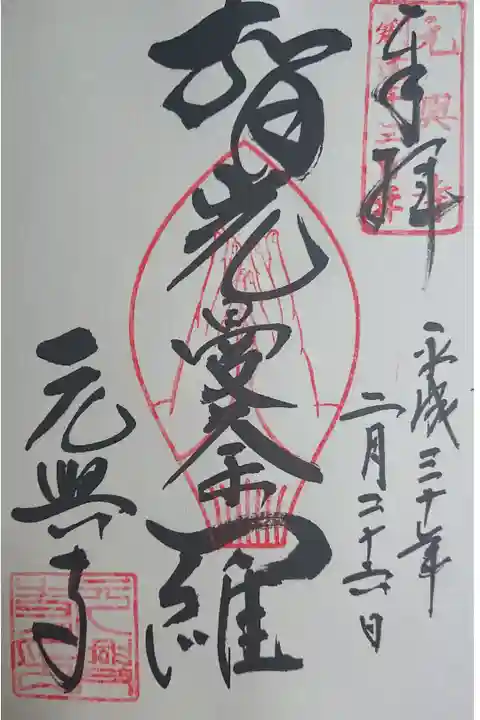 奉拝
平成三十年
二月二十六日
智光曼荼羅
元興寺